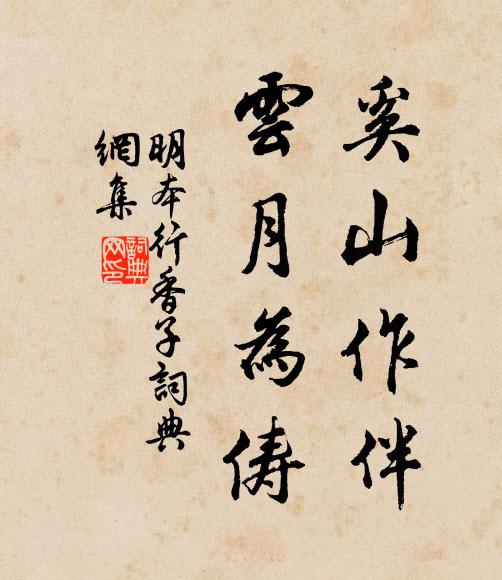 奚山作伴
雲月為儔
明本行香子詞典
網集
詞典
网印